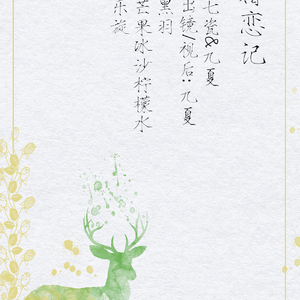 恋记
七瓷&九夏
出镜/视后:九夏
黑羽
芒果冰沙柠檬水
乐旋